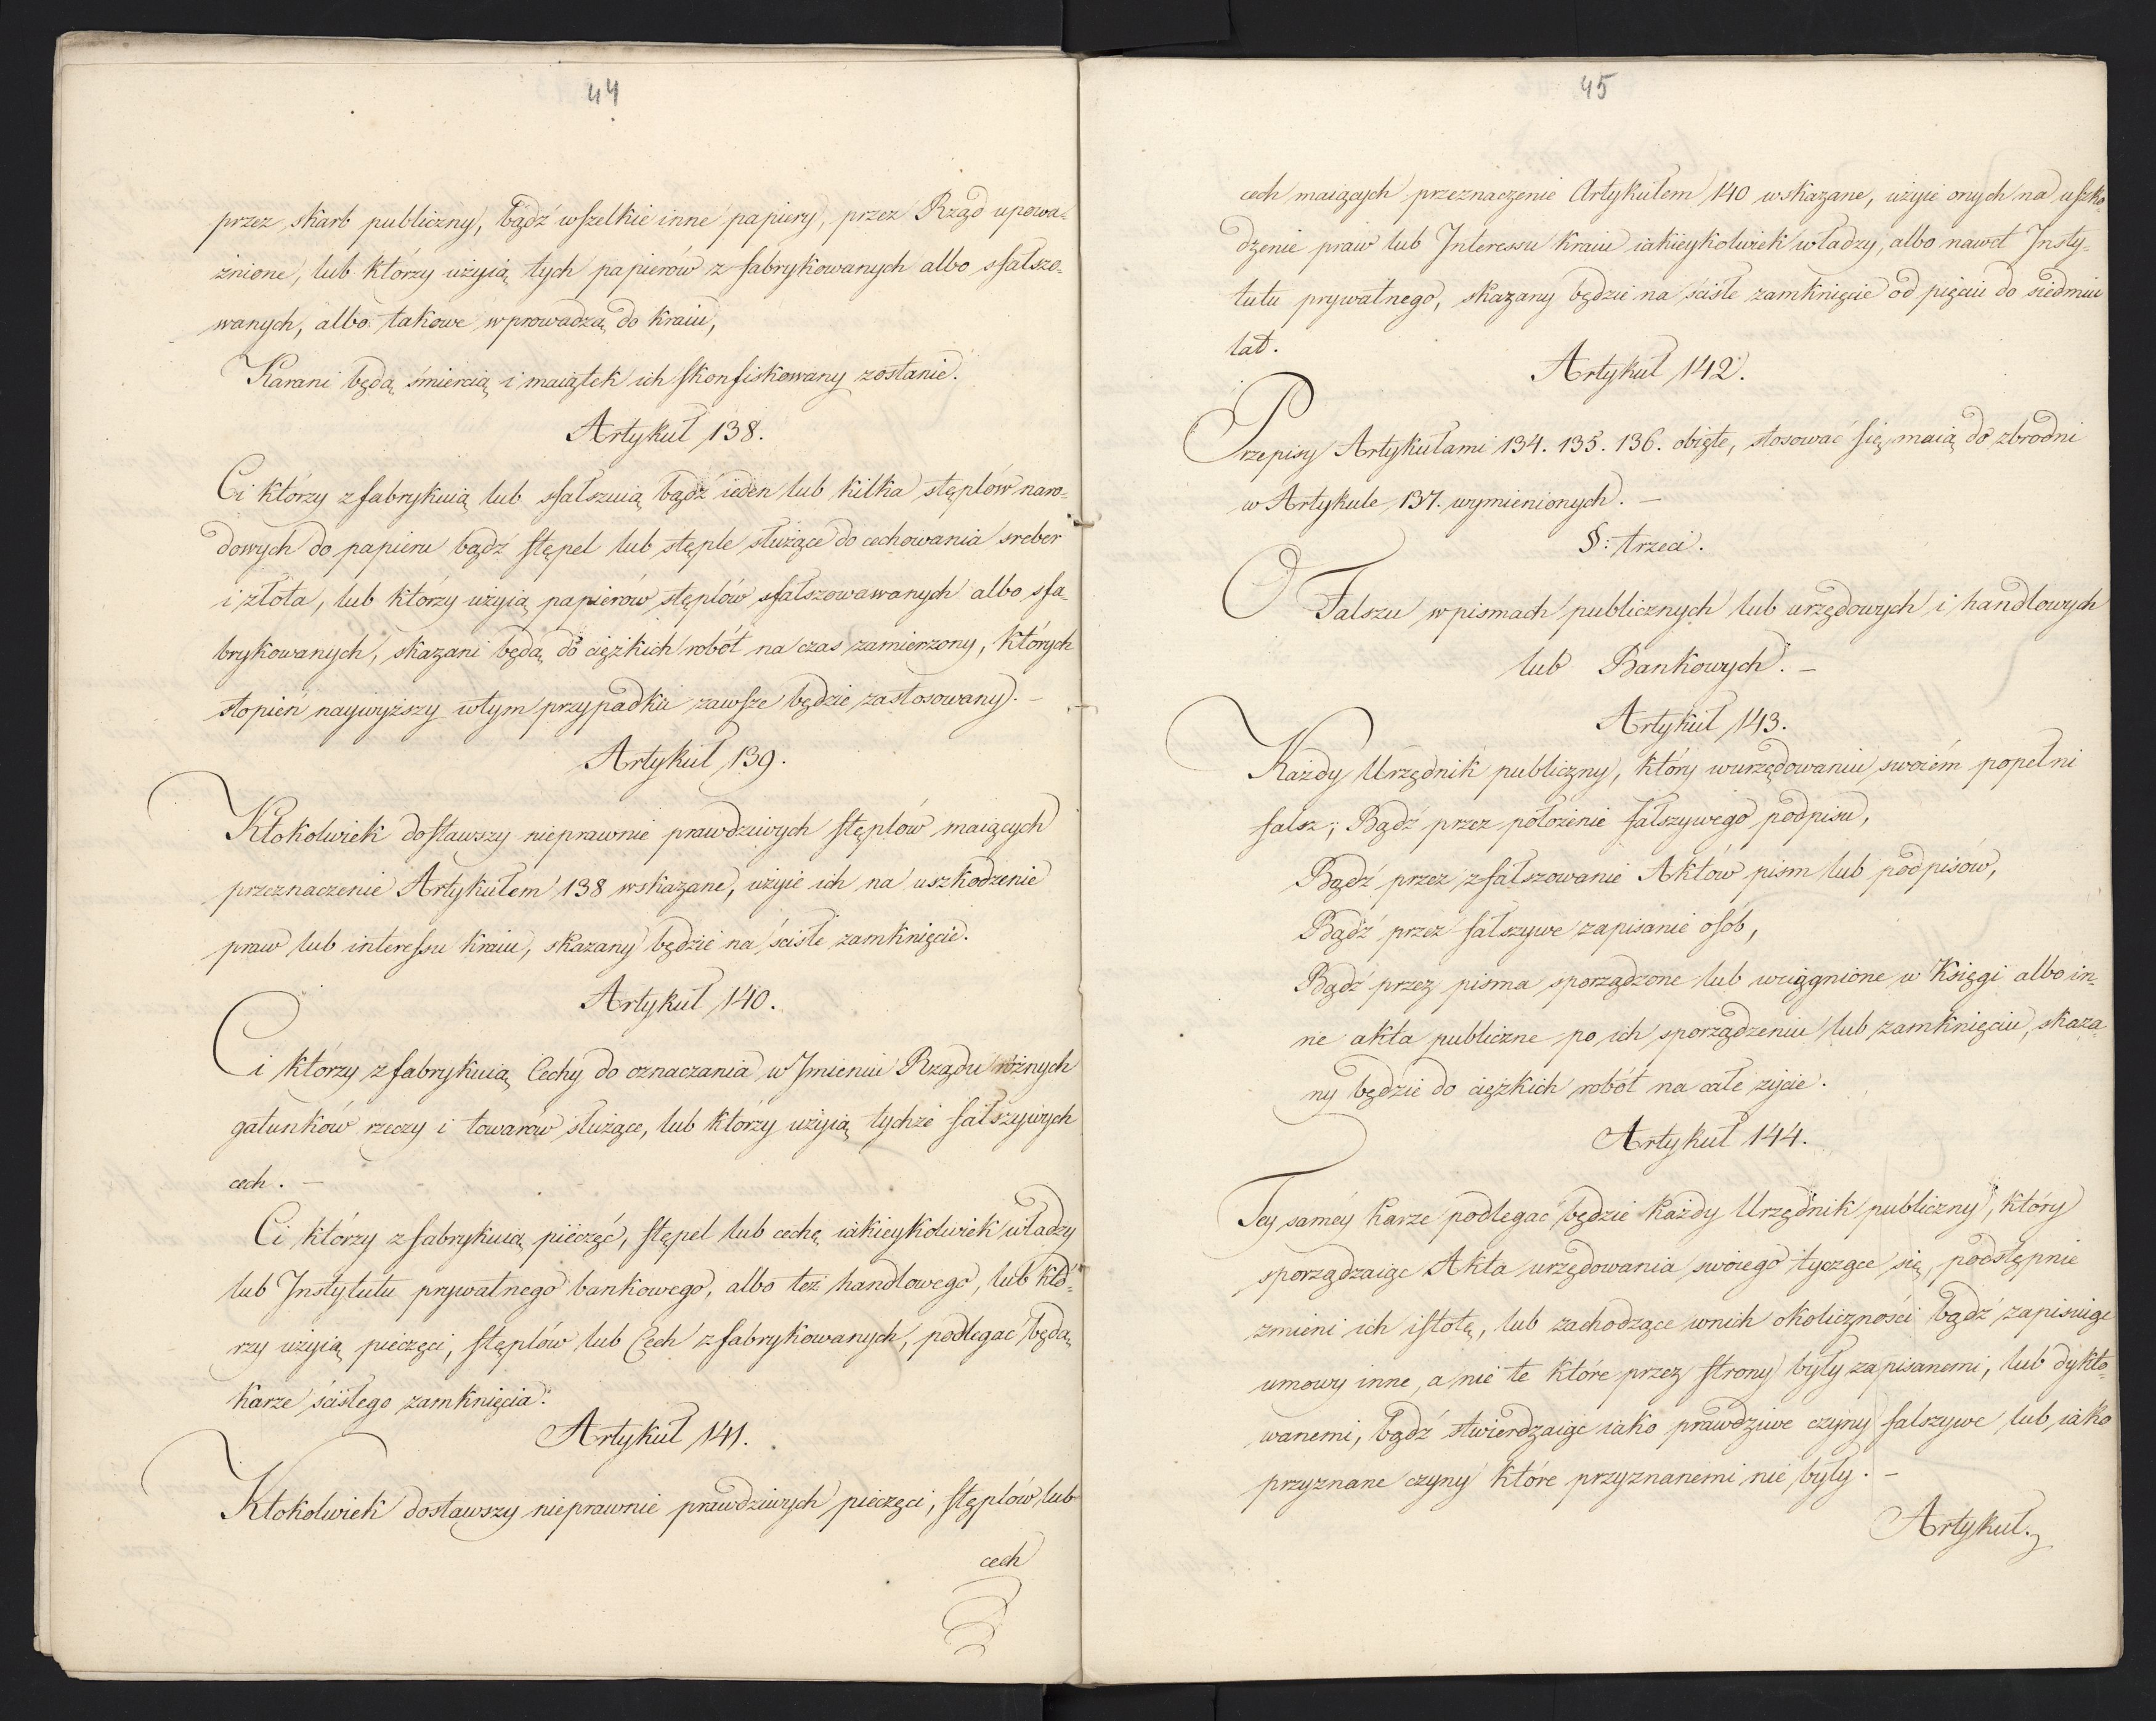 44
przez skarb publiczny, bądź wszelkie inne papiery, przez Rząd upowa-
żnione, lub którzy użyią tych papierów zfabrykowanych albo sfałszo-
wanych, albo takowe wprowadzą do kraiu,
Karani będą śmiercią i maiątek ich skonfiskowany zostanie.
Artykuł 138.
Ci którzy zfabrykuią lub sfałszuią bądź ieden lub kilka stęplów naro-
dowych do papieru bądź stępel lub stęple służące do cechowania sreber
i złota, lub którzy użyią papierów stęplów sfałszowawanych albo sfa-
brykowanych, skazani będą do ciężkich robót na czas zamierzony, których
stopień naywyższy wtym przypadku zawsze będzie zastosowany. –
Artykuł 139.
Ktokolwiek dostawszy nieprawnie prawdziwych stęplów maiących
przeznaczenie Artykułem 138 wskazane, użyie ich na uszkodzenie
praw lub interessu kraiu, skazany będzie na ściśłe zamknięcie.
Artykuł 140.
Ci którzy zfabrykuią Cechy do oznaczania w Jmieniu Rządu różnych
gatunków rzeczy i towarów służące, lub którzy użyią tychże fałszywych
cech. –
Ci którzy zfabrykuią pieczęć, stępel lub cechę iakieykolwiek władzy
lub Jnstytutu prywatnego bankowego, albo też handlowego, lub któ-
rzy użyią pieczęci, stęplów lub Cech zfabrykowanych, podlegać będą
karze ściśłego zamknięcia.
Artykuł 141.
Ktokolwiek dostawszy nieprawnie prawdziwych pieczęci, stęplów, lub
cech
45
cech maiących przeznaczenie Artykułem 140 wskazane, użyie onych na uszko-
dzenie praw lub Jnteressu kraiu iakieykolwiek władzy, albo nawet Jnsty-
tutu prywatnego, skazany będzie na ściśłe zamknięcie od pięciu do siedmiu
lat.
Artykuł 142.
Przepisy Artykułami 134. 135. 136. obięte, stosować się maią do zbrodni
w Artykule 137. wymienionych. –
§: trzeci.
O Fałszu w pismach publicznych lub urzędowych i handlowych
lub Bankowych. –
Artykuł 143.
Każdy Urzędnik publiczny, który wurzędowaniu swoiém popełni
fałsz; Bądź przez położenie fałszywego podpisu,
Bądź przez zfałszowanie Aktów pism lub podpisów,
Bądź przez fałszywe zapisanie osób,
Bądź przez pisma sporządzone lub wciągnione w Księgi albo in-
ne akta publiczne po ich sporządzeniu lub zamknięciu, skaza-
ny będzie do ciężkich robót na całe życie.
Artykuł 144.
Tey saméy karze podlegać będzie każdy Urzędnik publiczny, który
sporządzaiąc Akta urzędowania swoiego tyczące się, podstępnie
zmieni ich istotę, lub zachodzące wnich okoliczności bądź zapisuiąc
umowy inne, a nie te które przez strony były zapisanemi, lub dykto-
wanemi, bądź stwierdzaiąc iako prawdziwe czyny fałszywe lub iako
przyznane czyny które przyznanemi nie były. –
Artykuł.